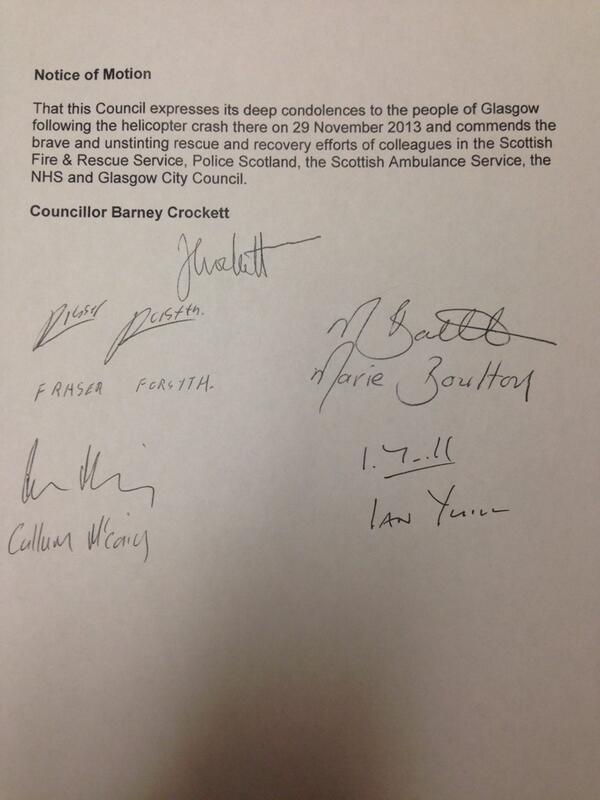 Notice of Motion
That this Council expresses its deep condolences to the people of Glasgow
following the helicopter crash there on 29 November 2013 and commends the
brave and unstinting rescue and recovery efforts of colleagues in the Scottish
Fire & Rescue Service, Police Scotland, the Scottish Ambulance Service, the
NHS and Glasgow City Council.
Councillor Barney Crockett
Crockett
FRASER FORSYTH.
Marie Boulton
Callum McCaig
IAN Yuill